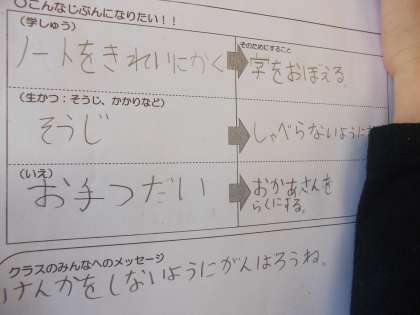 ○こんなじぶんになりたい！！
(学しゅう)
ノートをきれいにかく
そのためにすること
字をおぼえる。
(生かつ：そうじ、かかりなど)
そうじ
しゃべらないように
(いえ)
お手つだい
おかあさんを
らくにする。
クラスのみんなへのメッセージ
けんかをしないようにがんばろうね。